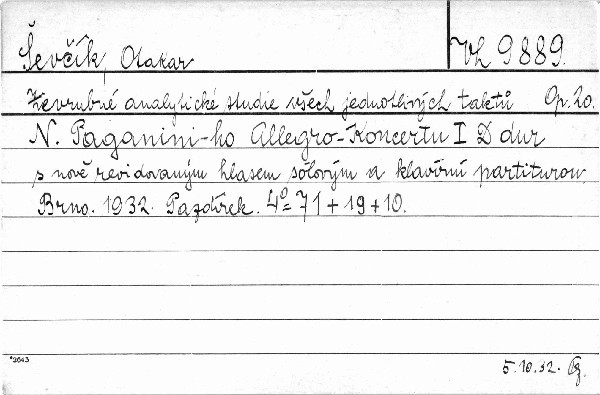 Ševčík, Otakar Vh 9889.
Zevrubné analytické studie všech jednotlivých taktů Op. 20.
N. Paganini-ho Allegro-Koncertu I D dur
s nově revidovaným hlasem sólovým a klavírní partiturou.
Brno. 1932. Pazdírek. 4º = 71 + 19 + 10.
*2643
5.10.32.